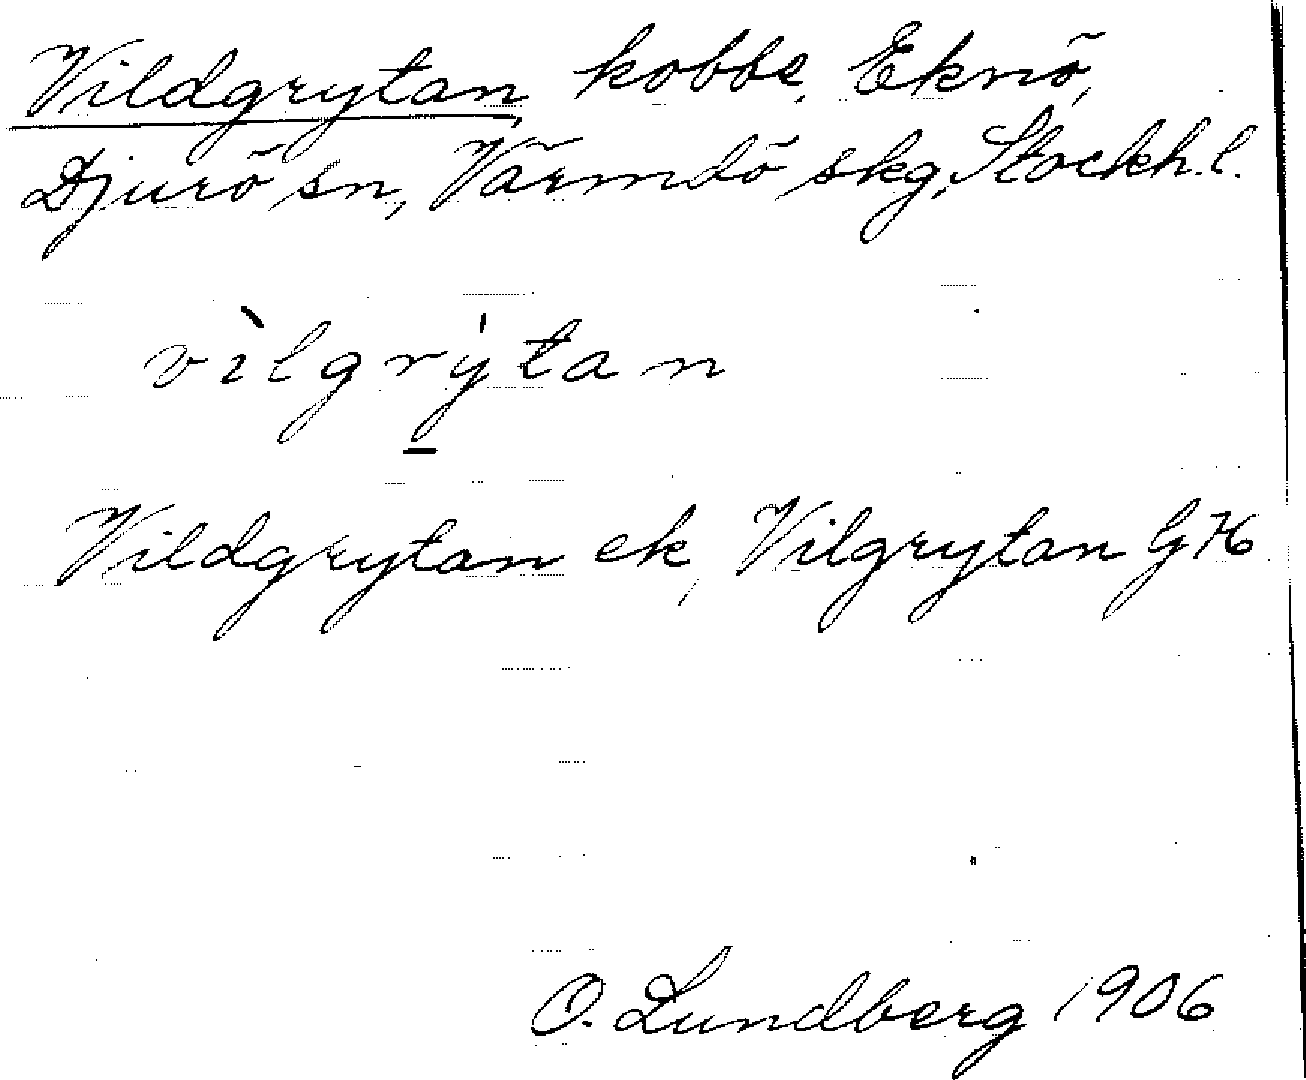 Vildgrytan, kobbe, Eknö,
Djurö sn, Värmdö skg, Stockh. l.
vìlgrý̱tan
Vildgrytan ek, Vilgrytan GK
O. Lundberg 1906